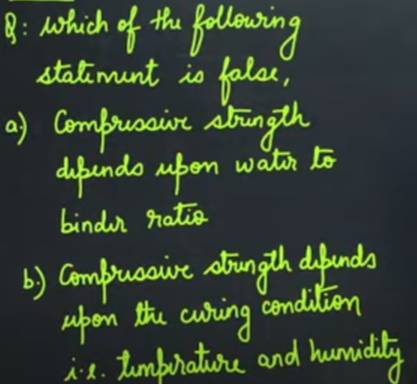 Q: which of the following
statement is false,
a) Compressive strength
depends upon water to
binder ratio
b.) Compressive strength depends
upon the curing condition
i.e. temperature and humidity